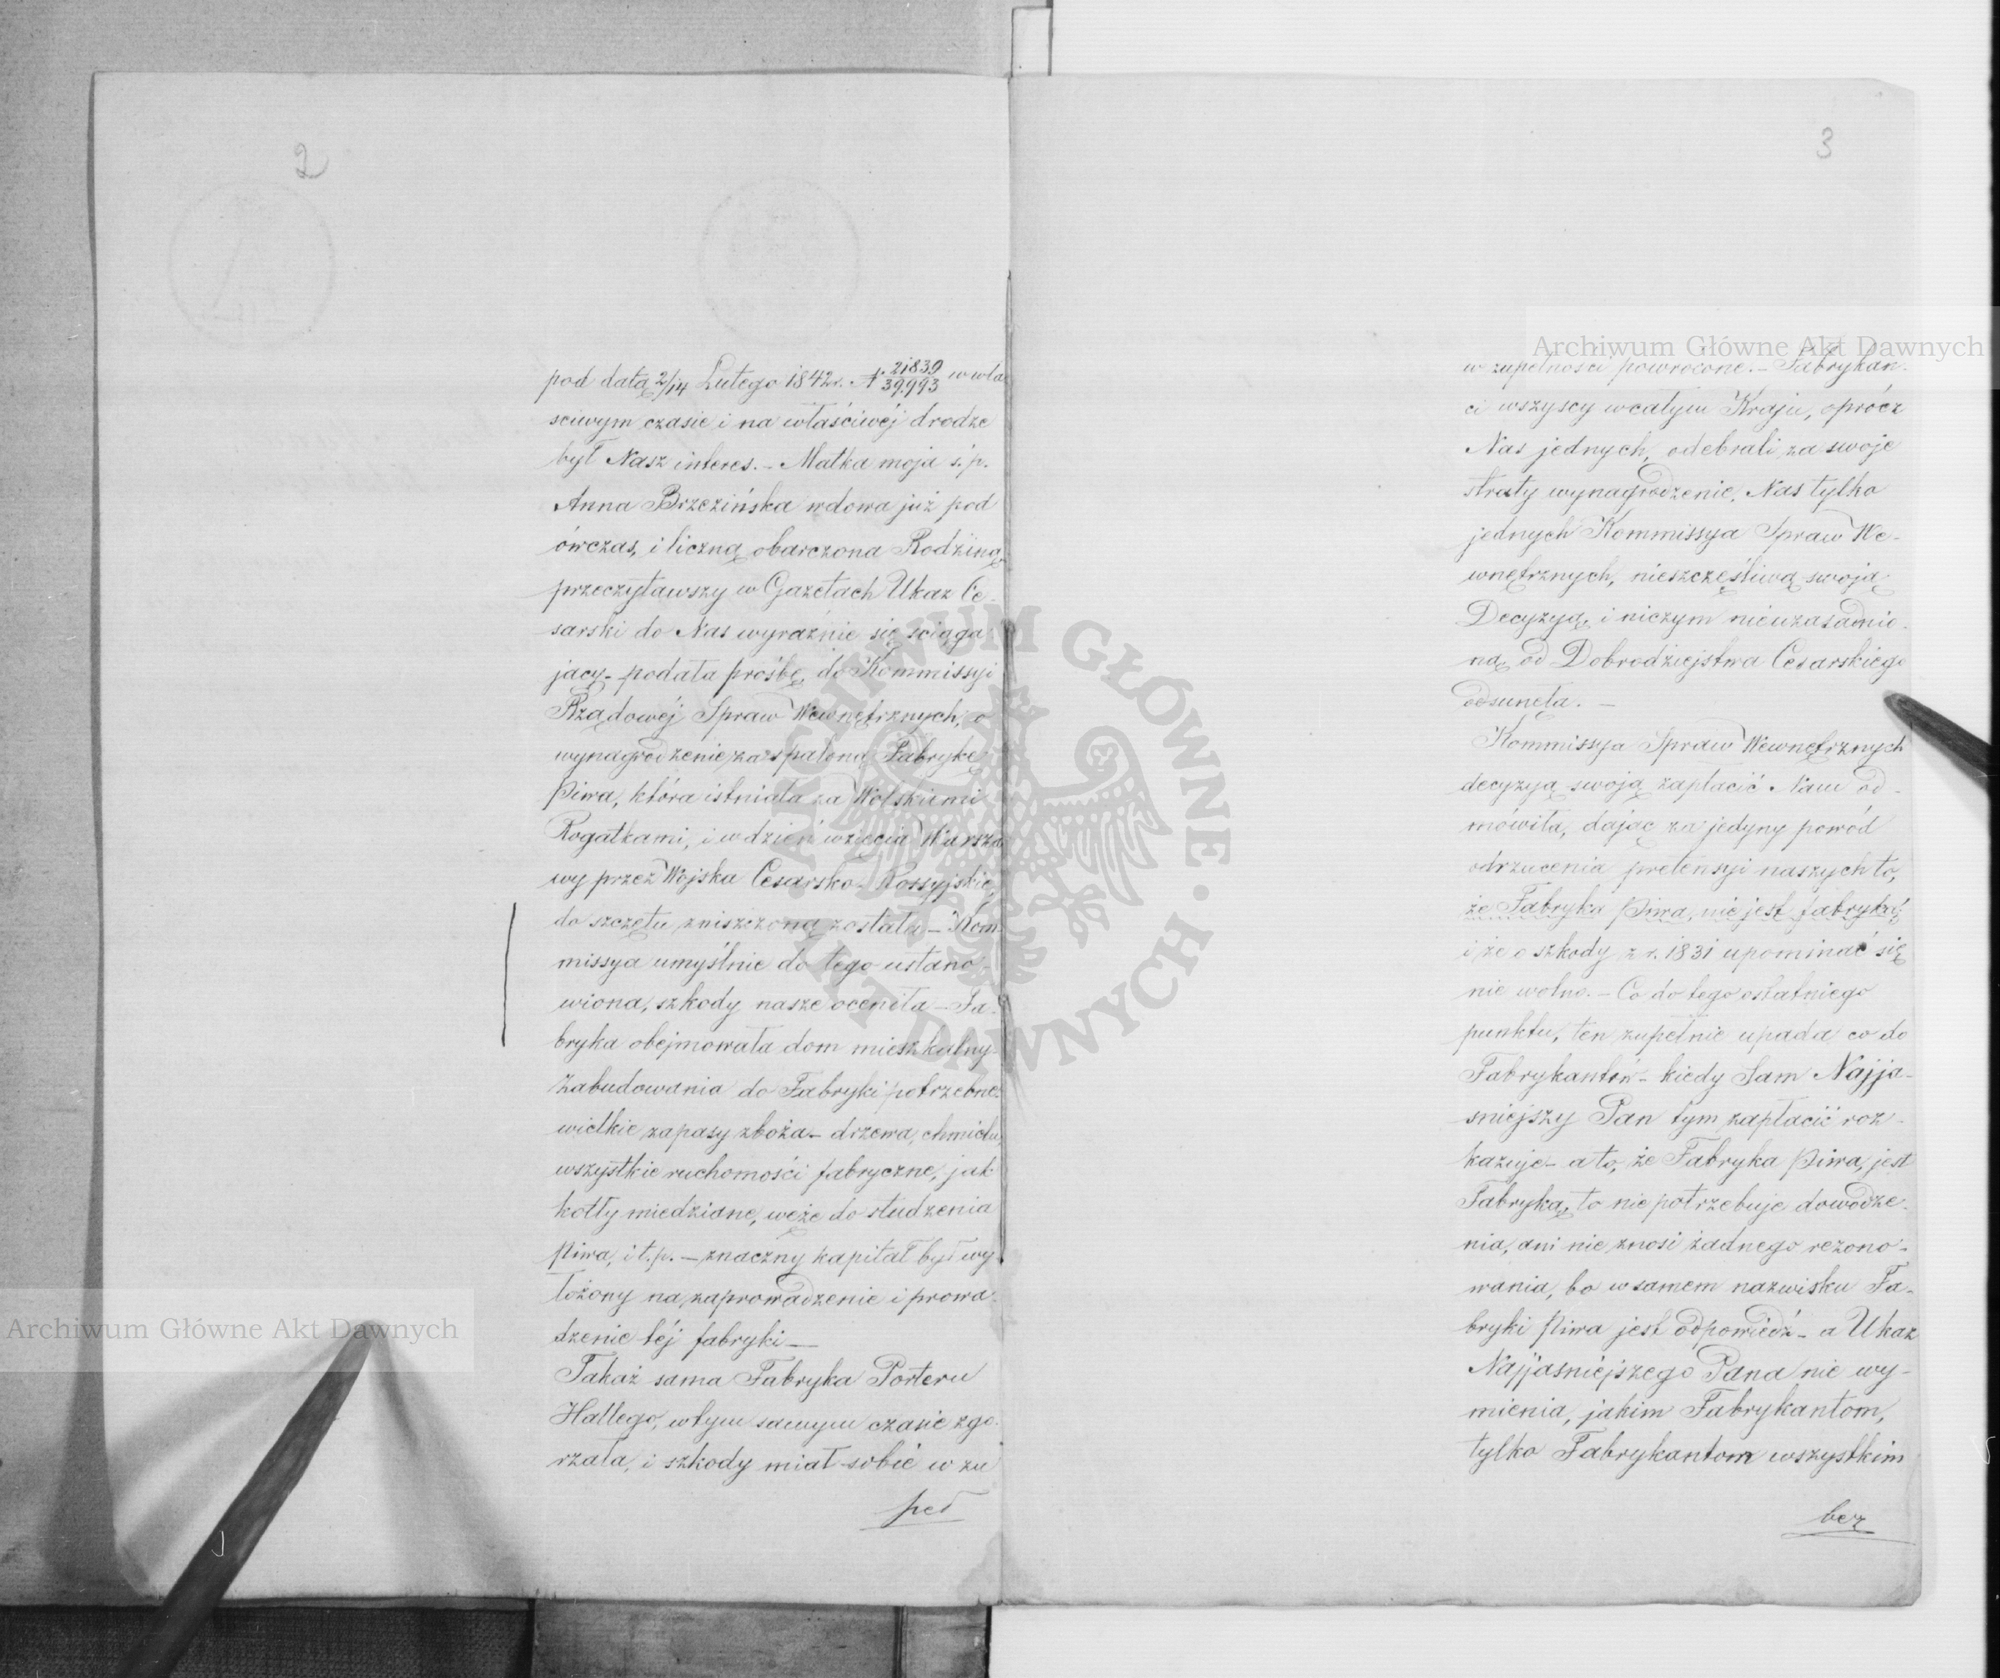 2
pod datą 2/14 Lutego 1842 r. N 21839/39993 w wła
sciwym czasie i na właściwéj drodze
był Nasz interes. – Matka moja ś. p.
Anna Brzezińska wdowa już pod
ówczas, i liczną obarczona Rodziną,
przeczytawszy w Gazetach Ukaz Ce-
sarski do Nas wyraźnie się sciąga
jący – podała prośbę, do Kommissyi
Rządowéj Spraw Wewnętrznych, o
wynagrodzenie za spaloną Fabrykę
Piwa, która istniała za Wolskiemi
Rogatkami, i w dzień wzięcia Warsza
wy przez Wojska Cesarsko-Rossyjskie,
do szczętu zniszczoną została – Kom
missya umyślnie do tego ustano-
wiona, szkody nasze oceniła – Fa-
bryka obejmowała dom mieszkalny
Zabudowania do Fabryki potrzebne
wielkie zapasy zboża – drzewa, chmielu,
wszystkie ruchomości fabryczne, jak
kotły miedziane, węże do studzenia
Piwa, i t. p. – znaczny kapitał był wy
łożony na zaprowadzenie i prowa-
dzenie téj fabryki —
Takaż sama Fabryka Porteru
Hallego, w tym samym czasie zgo-
rzała, i szkody miał sobie w zu
peł
3
w zupełności powrócone. – Fabrykan-
ci wszyscy w całym Kraju, oprócz
Nas jednych, odebrali za swoje
straty wynagrodzenie, Nas tylko
jednych Kommissya Spraw We-
wnętrznych, nieszczęśliwą swoją
Decyzyą, i niczym nieuzasadnio-
ną, od Dobrodziejstwa Cesarskiego
odsunęła. –
Kommissya Spraw Wewnętrznych
decyzyą swoją zapłacić Nam od-
mówiła, dając za jedyny powód
odrzucenia pretensyi naszych to,
że Fabryka Piwa, nie jest fabryką,
i że o szkody z r. 1831 upominać się
nie wolno. – Co do tego ostatniego
punktu, ten zupełnie upada co do
Fabrykantów – kiedy Sam Najja-
śniejszy Pan tym zapłacić roz-
kazuje – a to, że Fabryka Piwa, jest
Fabryką, to nie potrzebuje dowodze-
nia, ani nie znosi żadnego rezono-
wania, bo w samem nazwisku Fa-
bryki Piwa jest odpowiedź – a Ukaz
Najjaśniejszego Pana nie wy-
mienia, jakim Fabrykantom,
tylko Fabrykantom wszystkim
bez
Archiwum Główne Akt Dawnych
Archiwum Główne Akt Dawnych
ARCHIWUM GŁÓWNE · AKT DAWNYCH ·